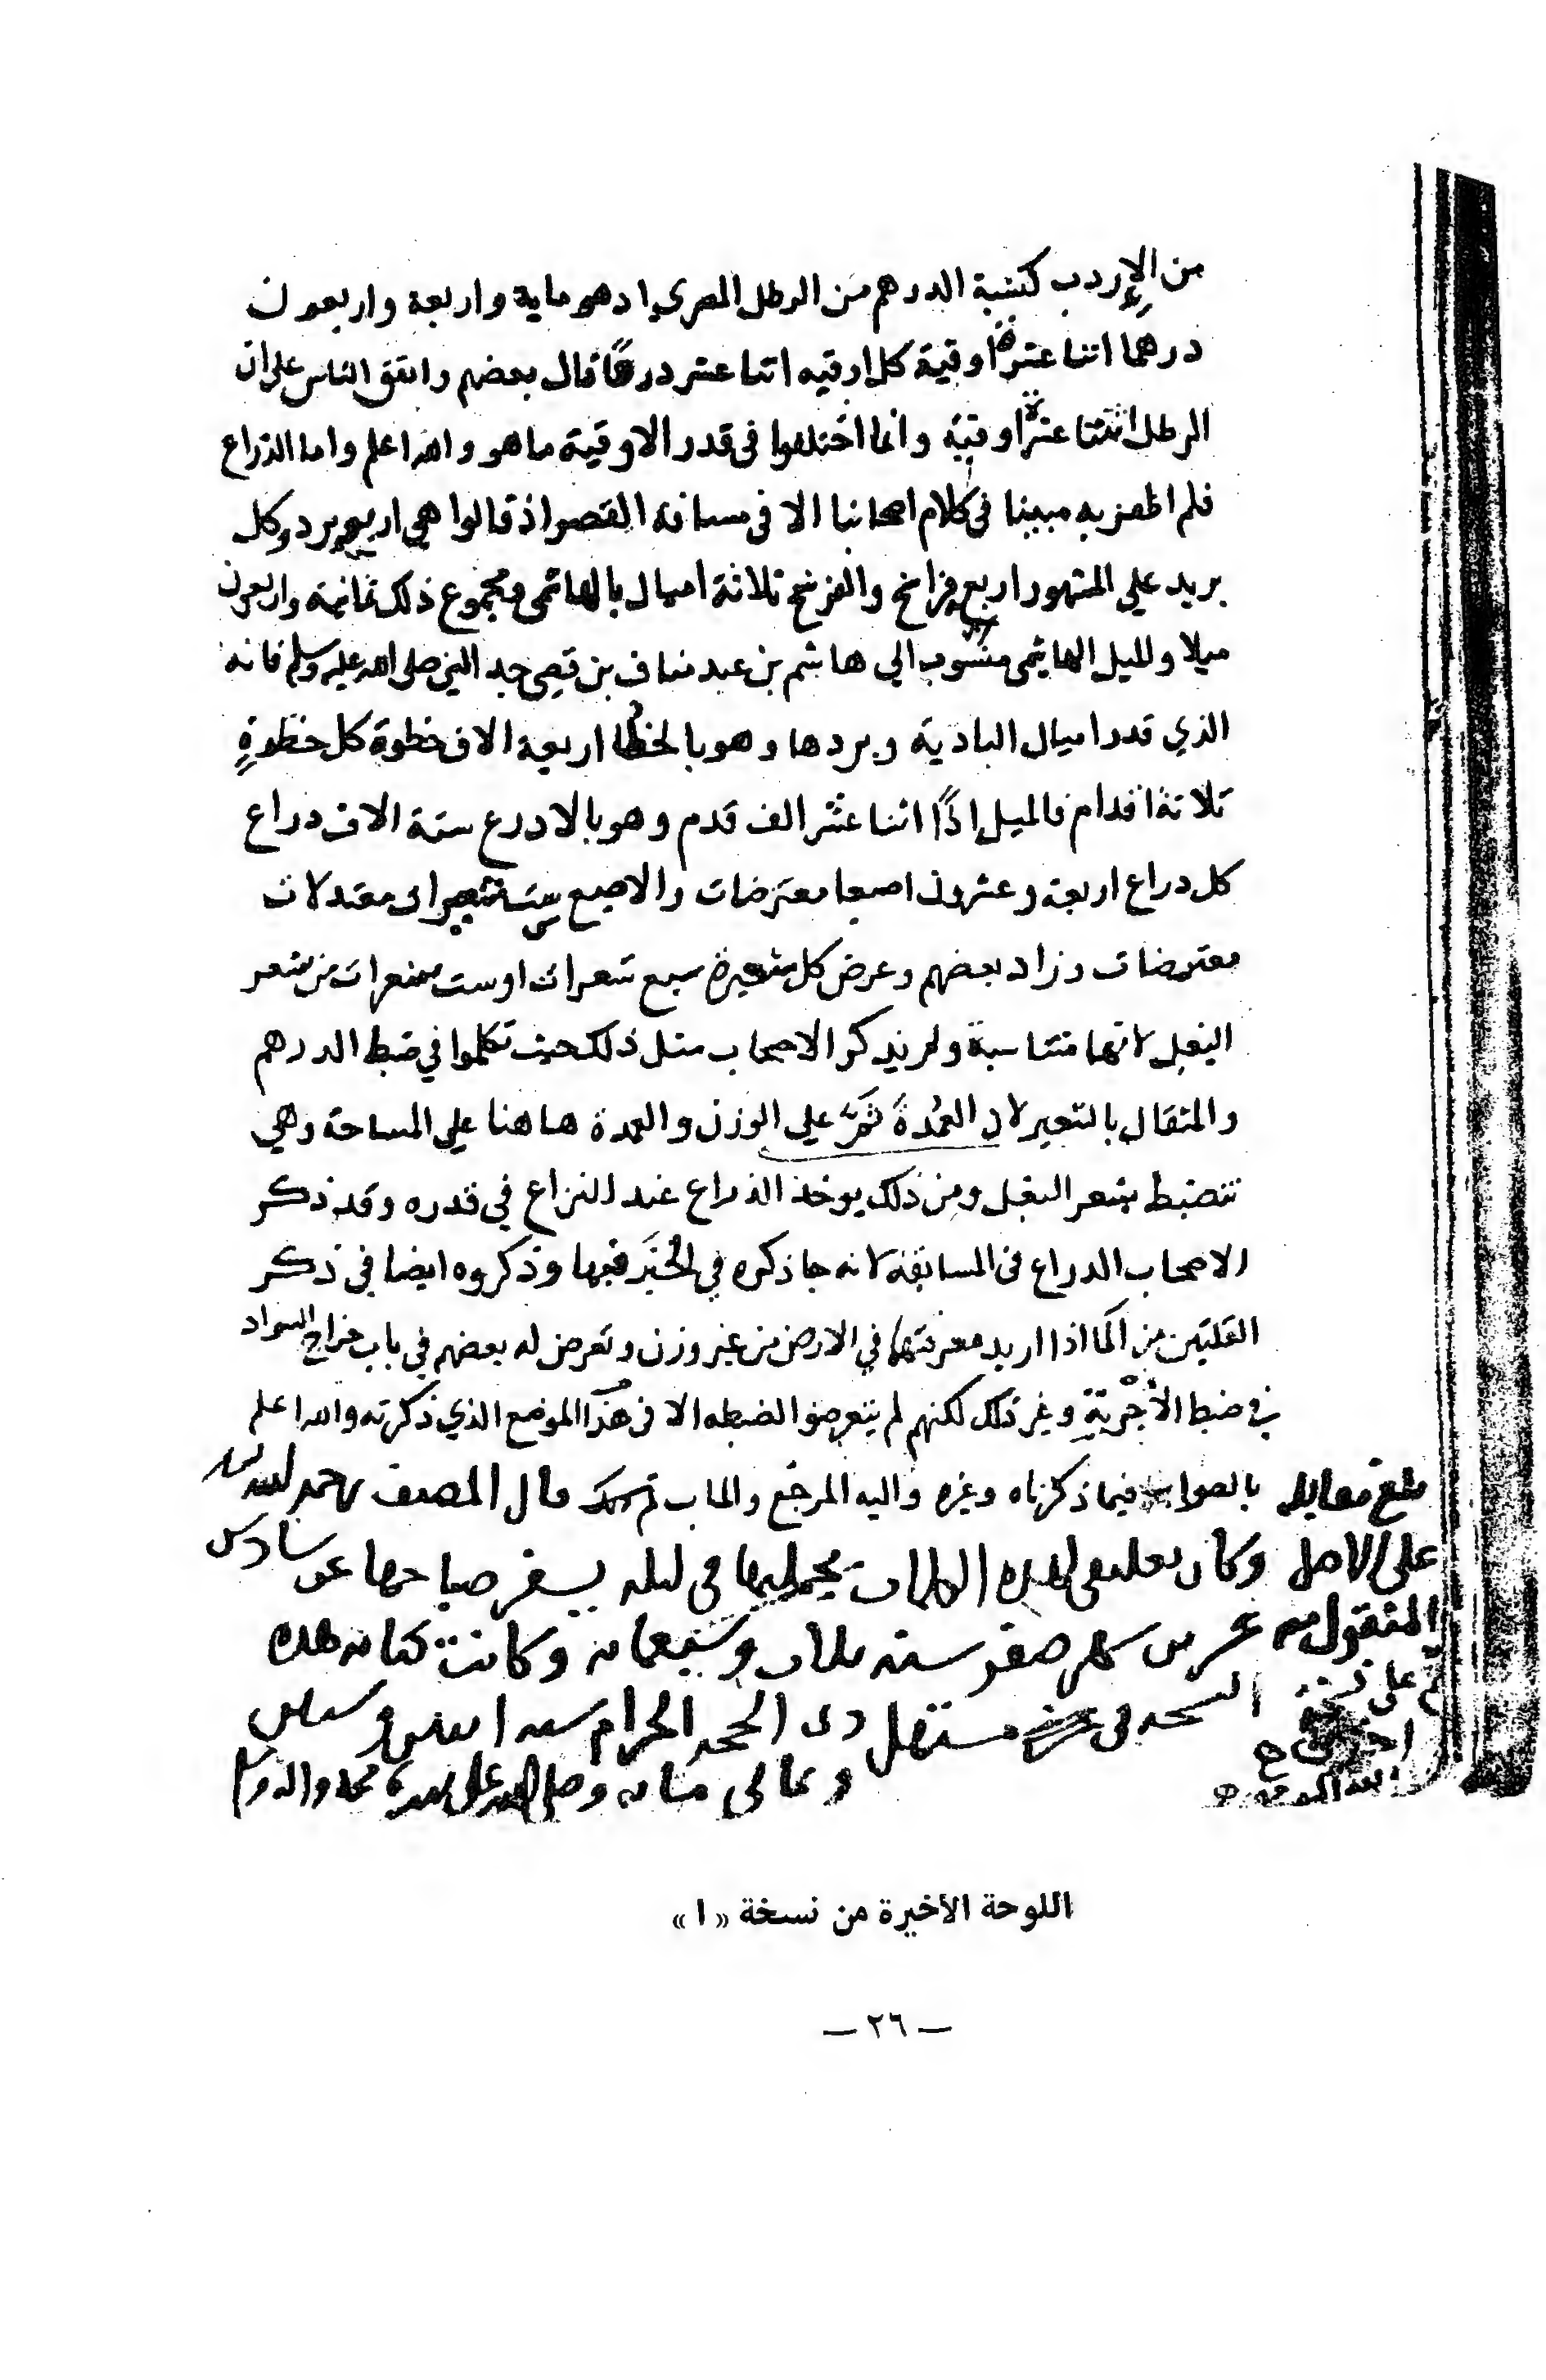 من الإردب كنسبة الدرهم من الرطل المصري اذ هو ماية واربعة واربعون
درهما اثنا عشر اوقية كل اوقيه اثنا عشر درهمًا قال بعضهم واتفق الناس على ان
الرطل اثنتا عشرة اوقية وانما اختلفوا في قدر الاوقية ما هو والله اعلم واما الذراع
فلم اظفر به مبينا في كلام اصحابنا الا في مسافة القصر اذ قالوا هي اربعة برد وكل
بريد علي المشهور اربع فراسخ والفرسخ ثلاثة اميال بالهاشمي ومجموع ذلك ثمانية واربعون
ميلا والميل الهاشمي منسوب الي هاشم بن عبد مناف بن قصي جد النبي صلى الله عليه وسلم فانه
الذي قدر اميال البادية وبردها وهو بالخطا اربعة الاف خطوة كل خطوةٍ
ثلاثة اقدام فالميل اذًا اثنا عشر الف قدم وهو بالاذرع ستة الاف ذراع
كل ذراع اربعة وعشرون اصبعا معترضات والاصبع ست شعيرات معتدلات
معترضات وزاد بعضهم وعرض كل شعيرة سبع شعرات او ست شعرات من شعر
البغل لانها متناسبة ولم يذكر الاصحاب مثل ذلك حيث تكلموا في ضبط الدرهم
والمثقال بالشعير لان العُمدةَ ثَمَّ علي الوزن والعمدة هاهنا علي المساحة وهي
تنضبط بشعر البغل ومن ذلك يوخذ الذراع عند النزاع في قدره وقد ذكر
الاصحاب الذراع في المسابقة لانه جا ذكره في الخبَر فيها وذكروه ايضا في ذكر
القلتين من الما اذا اريد معرفتهما في الارض من غير وزن وتعرض له بعضهم في باب خراج السواد
في ضبط الأجْربةِ وغير ذلك لكنهم لم يتعرضوا لضبطه الا في هذا الموضع الذي ذكرته والله اعلم
بالصواب فيما ذكرناه وغيره واليه المرجع والماب قال المصنف رحمه الله
وكان تعليقي لهذه الكلمات في ليلة يسفر صباحها عن سادس
عشرين شهر صفر سنه ثلاث وسبعمائه وكانت كتابه هذه
النسخه في مستهل ذى الحجه الحرام سنه اثنين
وثمانى مائه وصلى الله على سيدنا محمد واله
بلغ مقابله
على الاصل
المنقول منه
على نسخة
اللوحة الأخيرة من نسخة «ا»
— ٢٦ —